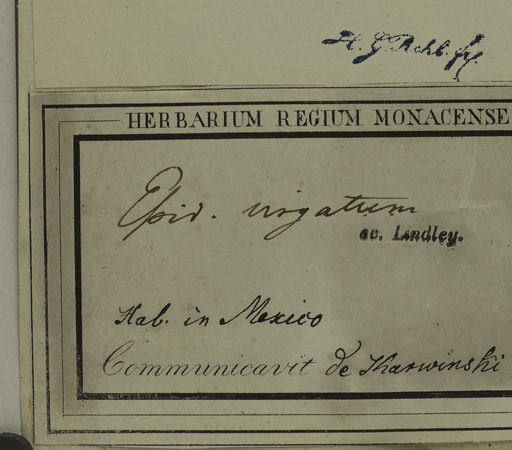 H. G. Rchb. fil.
HERBARIUM REGIUM MONACENSE
Epid. virgatum
sc. Lindley.
Hab. in Mexico
Communicavit de Karwinski